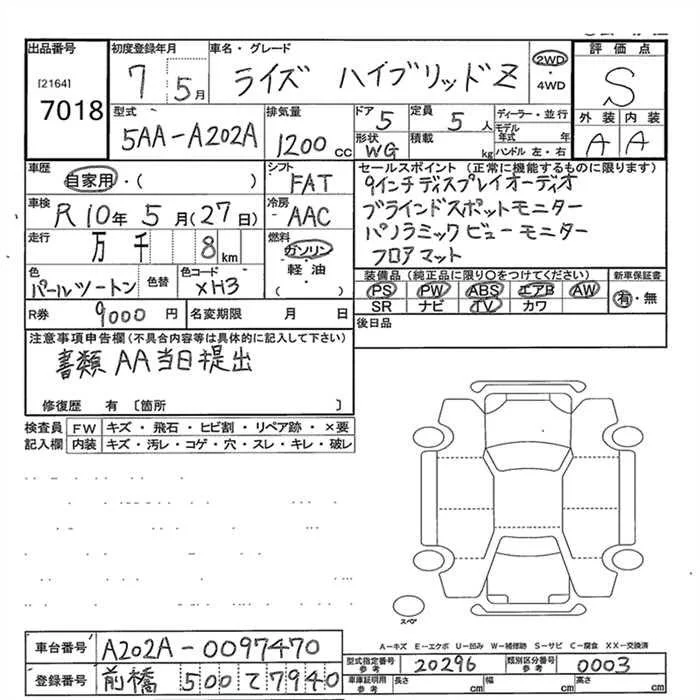 出品番号 初度登録年月 車名・グレード 評価点
[2164] 7 5月 ライズ ハイブリッドZ 2WD・4WD S
7018
型式 排気量 ドア 定員 ディーラー・並行 外装 内装
5AA-A202A 1200cc 5 5人 モデル年式 年 A A
形状 WG 積載 kg ハンドル 左・右
車歴 シフト セールスポイント (正常に機能するものに限ります)
自家用・( ) FAT 9インチディスプレイオーディオ
車検 冷房 ブラインドスポットモニター
R10年5月(27日) AAC パノラミックビューモニター
走行 万 千 8km 燃料 フロアマット
ガソリン・軽油・( )
色 色替 色コード 装備品 (純正品に限り○をつけてください) 新車保証書
パールツートン XH3 PS PW ABS エアB AW 有・無
SR ナビ TV カワ
R券 9000円 名変期限 月 日 後日品
注意事項申告欄(不具合内容等は具体的に記入して下さい)
書類AA当日提出
修復歴 有 〔箇所 〕
検査員 FW キズ・飛石・ヒビ割・リペア跡・×要
記入欄 内装 キズ・汚レ・コゲ・穴・スレ・キレ・破レ
スペア
A-キズ E-エクボ U-凹み W-補修跡 S-サビ C-腐食 XX-交換済
車台番号 A202A-0097470
型式指定番号 参考 20296 類別区分番号 参考 0003
登録番号 前橋 500 て 7940
車庫証明用 参考 長さ cm 幅 cm 高さ cm